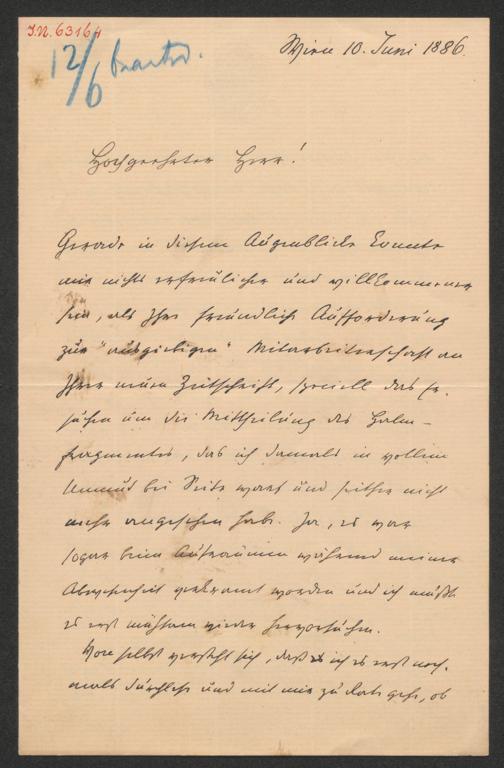 J.N. 63164
12/6 beantw.
Wien 10. Juni 1886.
Hochgeehrter Herr!
Gerade in diesem Augenblicke konnte
mir nichts erfreulicher und willkommener
sein, als Ihre freundliche Aufforderung
zur "ausgiebigen" Mitarbeiterschaft an
Ihrer neuen Zeitschrift, speciell das Er-
suchen um die Mittheilung des Halm-
fragmentes, das ich damals in vollem
Unmut bei Seite warf und seither nicht
mehr angesehen habe. Ja, es war
sogar beim Aufräumen während meiner
Abwesenheit verkramt worden und ich mußte
es erst mühsam wieder hervorsuchen.
Von selbst versteht sich, daß ich es erst noch-
mals durchlese und mit mir zu Rate gehe, ob